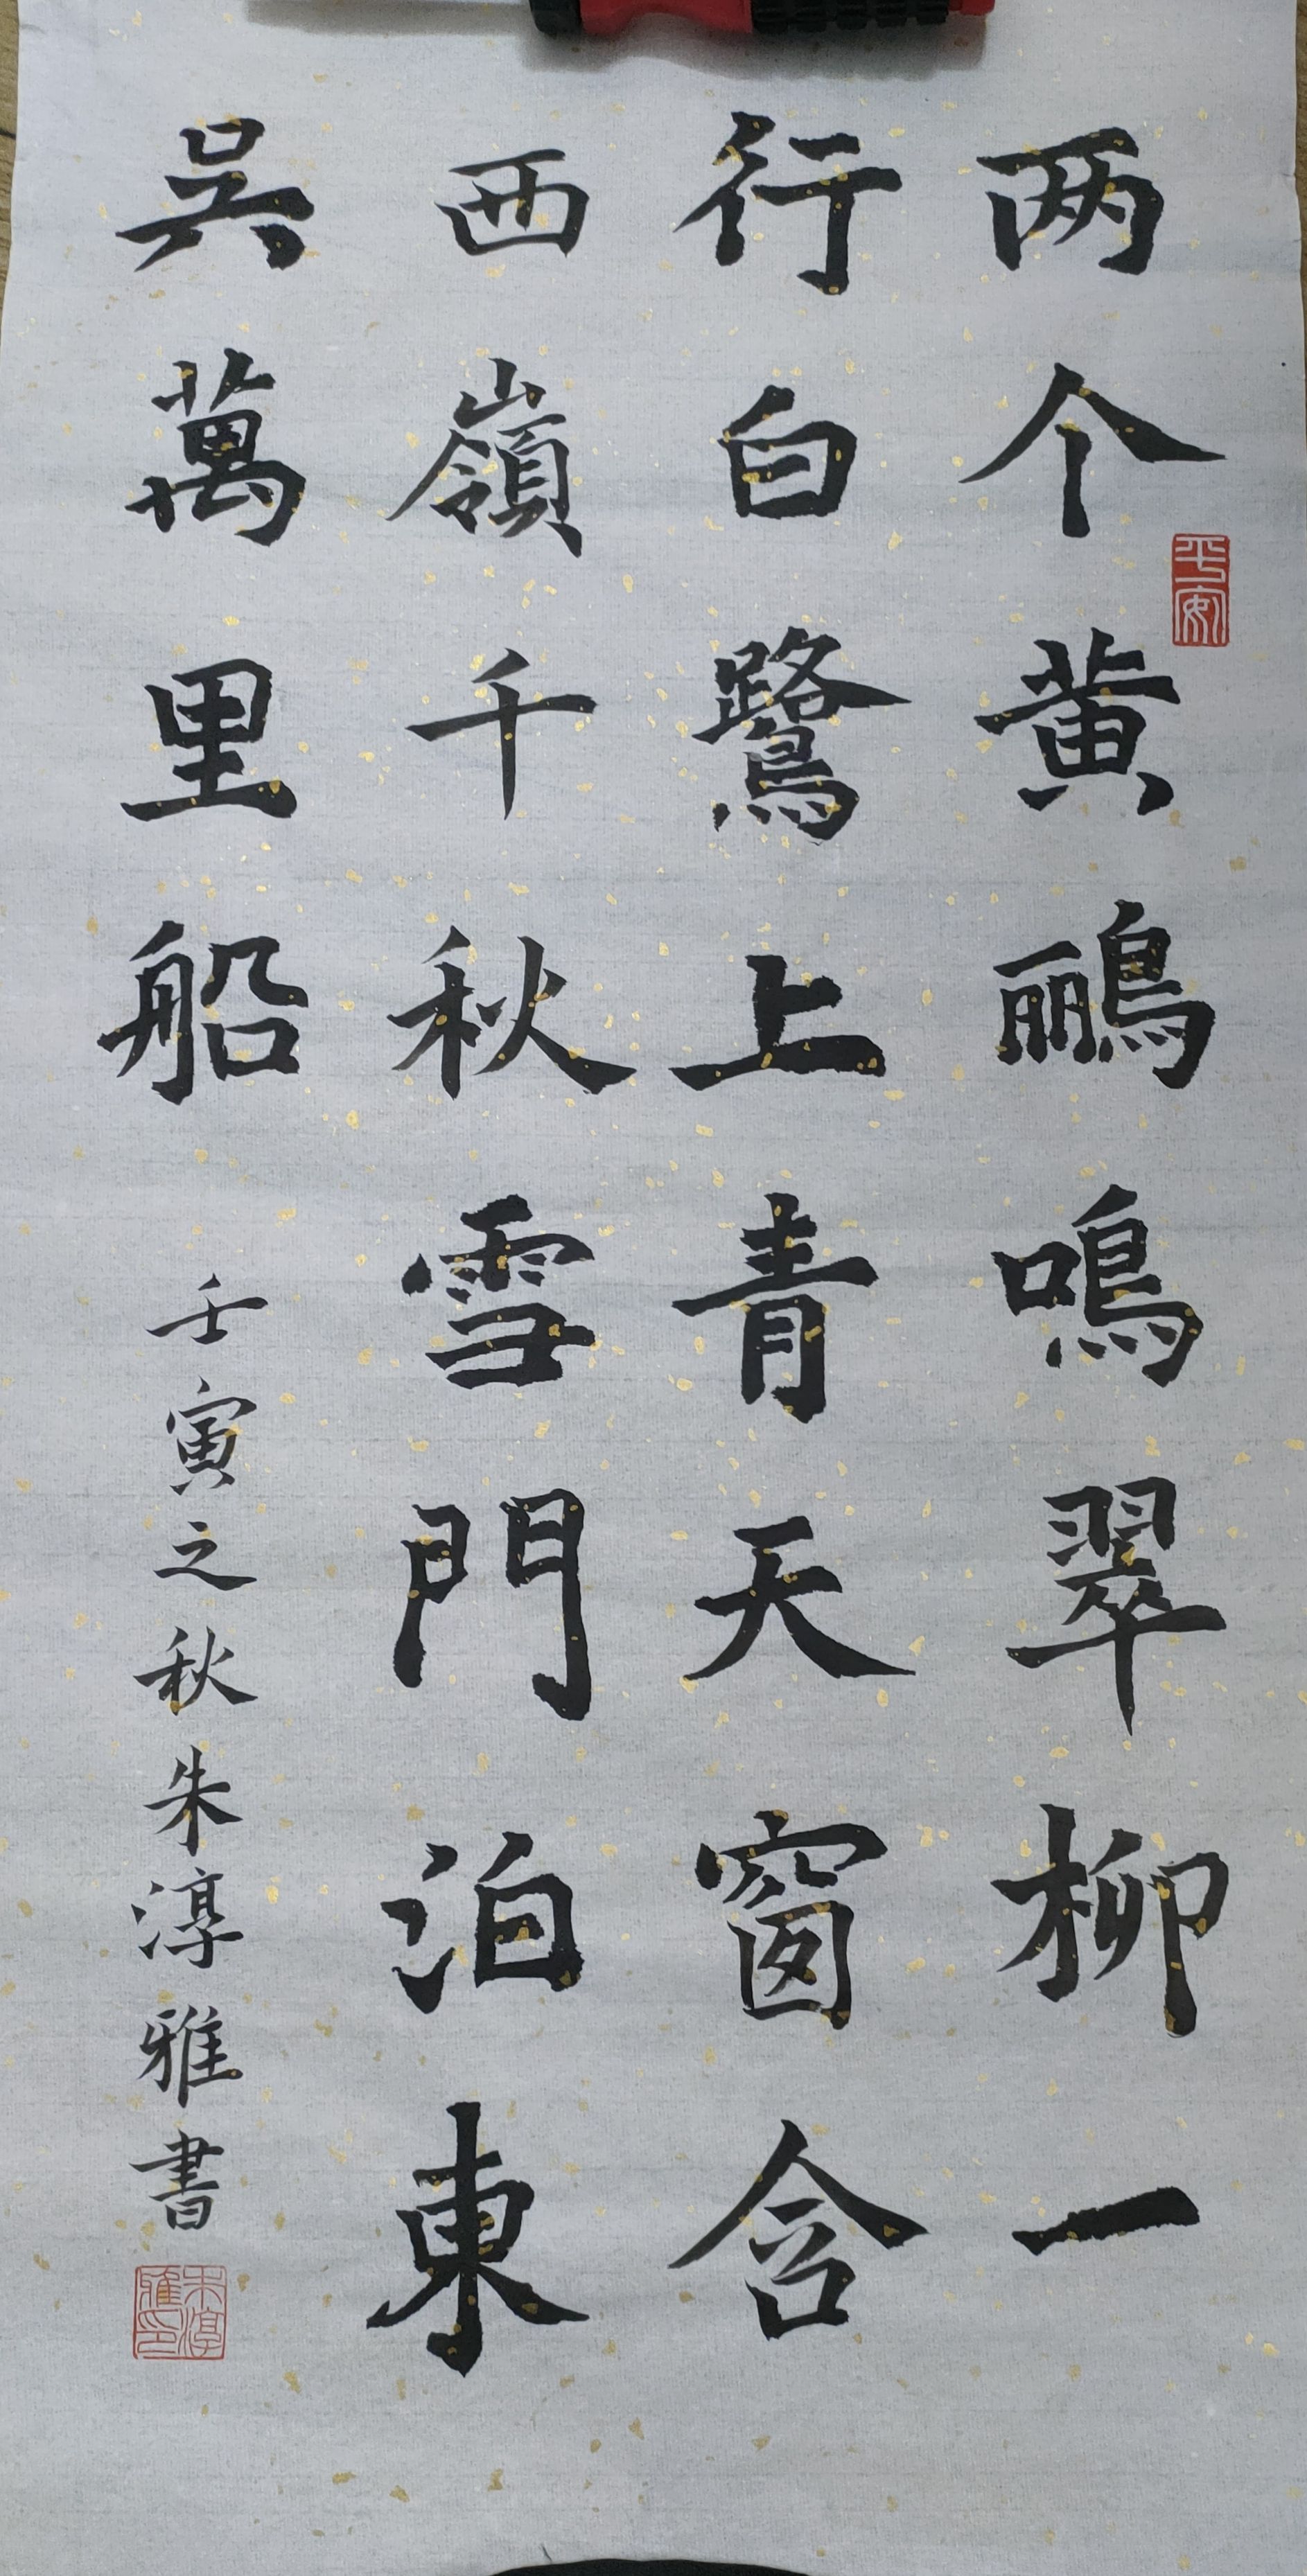 两个黄鹂鳴翠柳一
行白鷺上青天窗含
西嶺千秋雪門泊東
吳萬里船
壬寅之秋朱淳雅書
平安
朱淳雅印